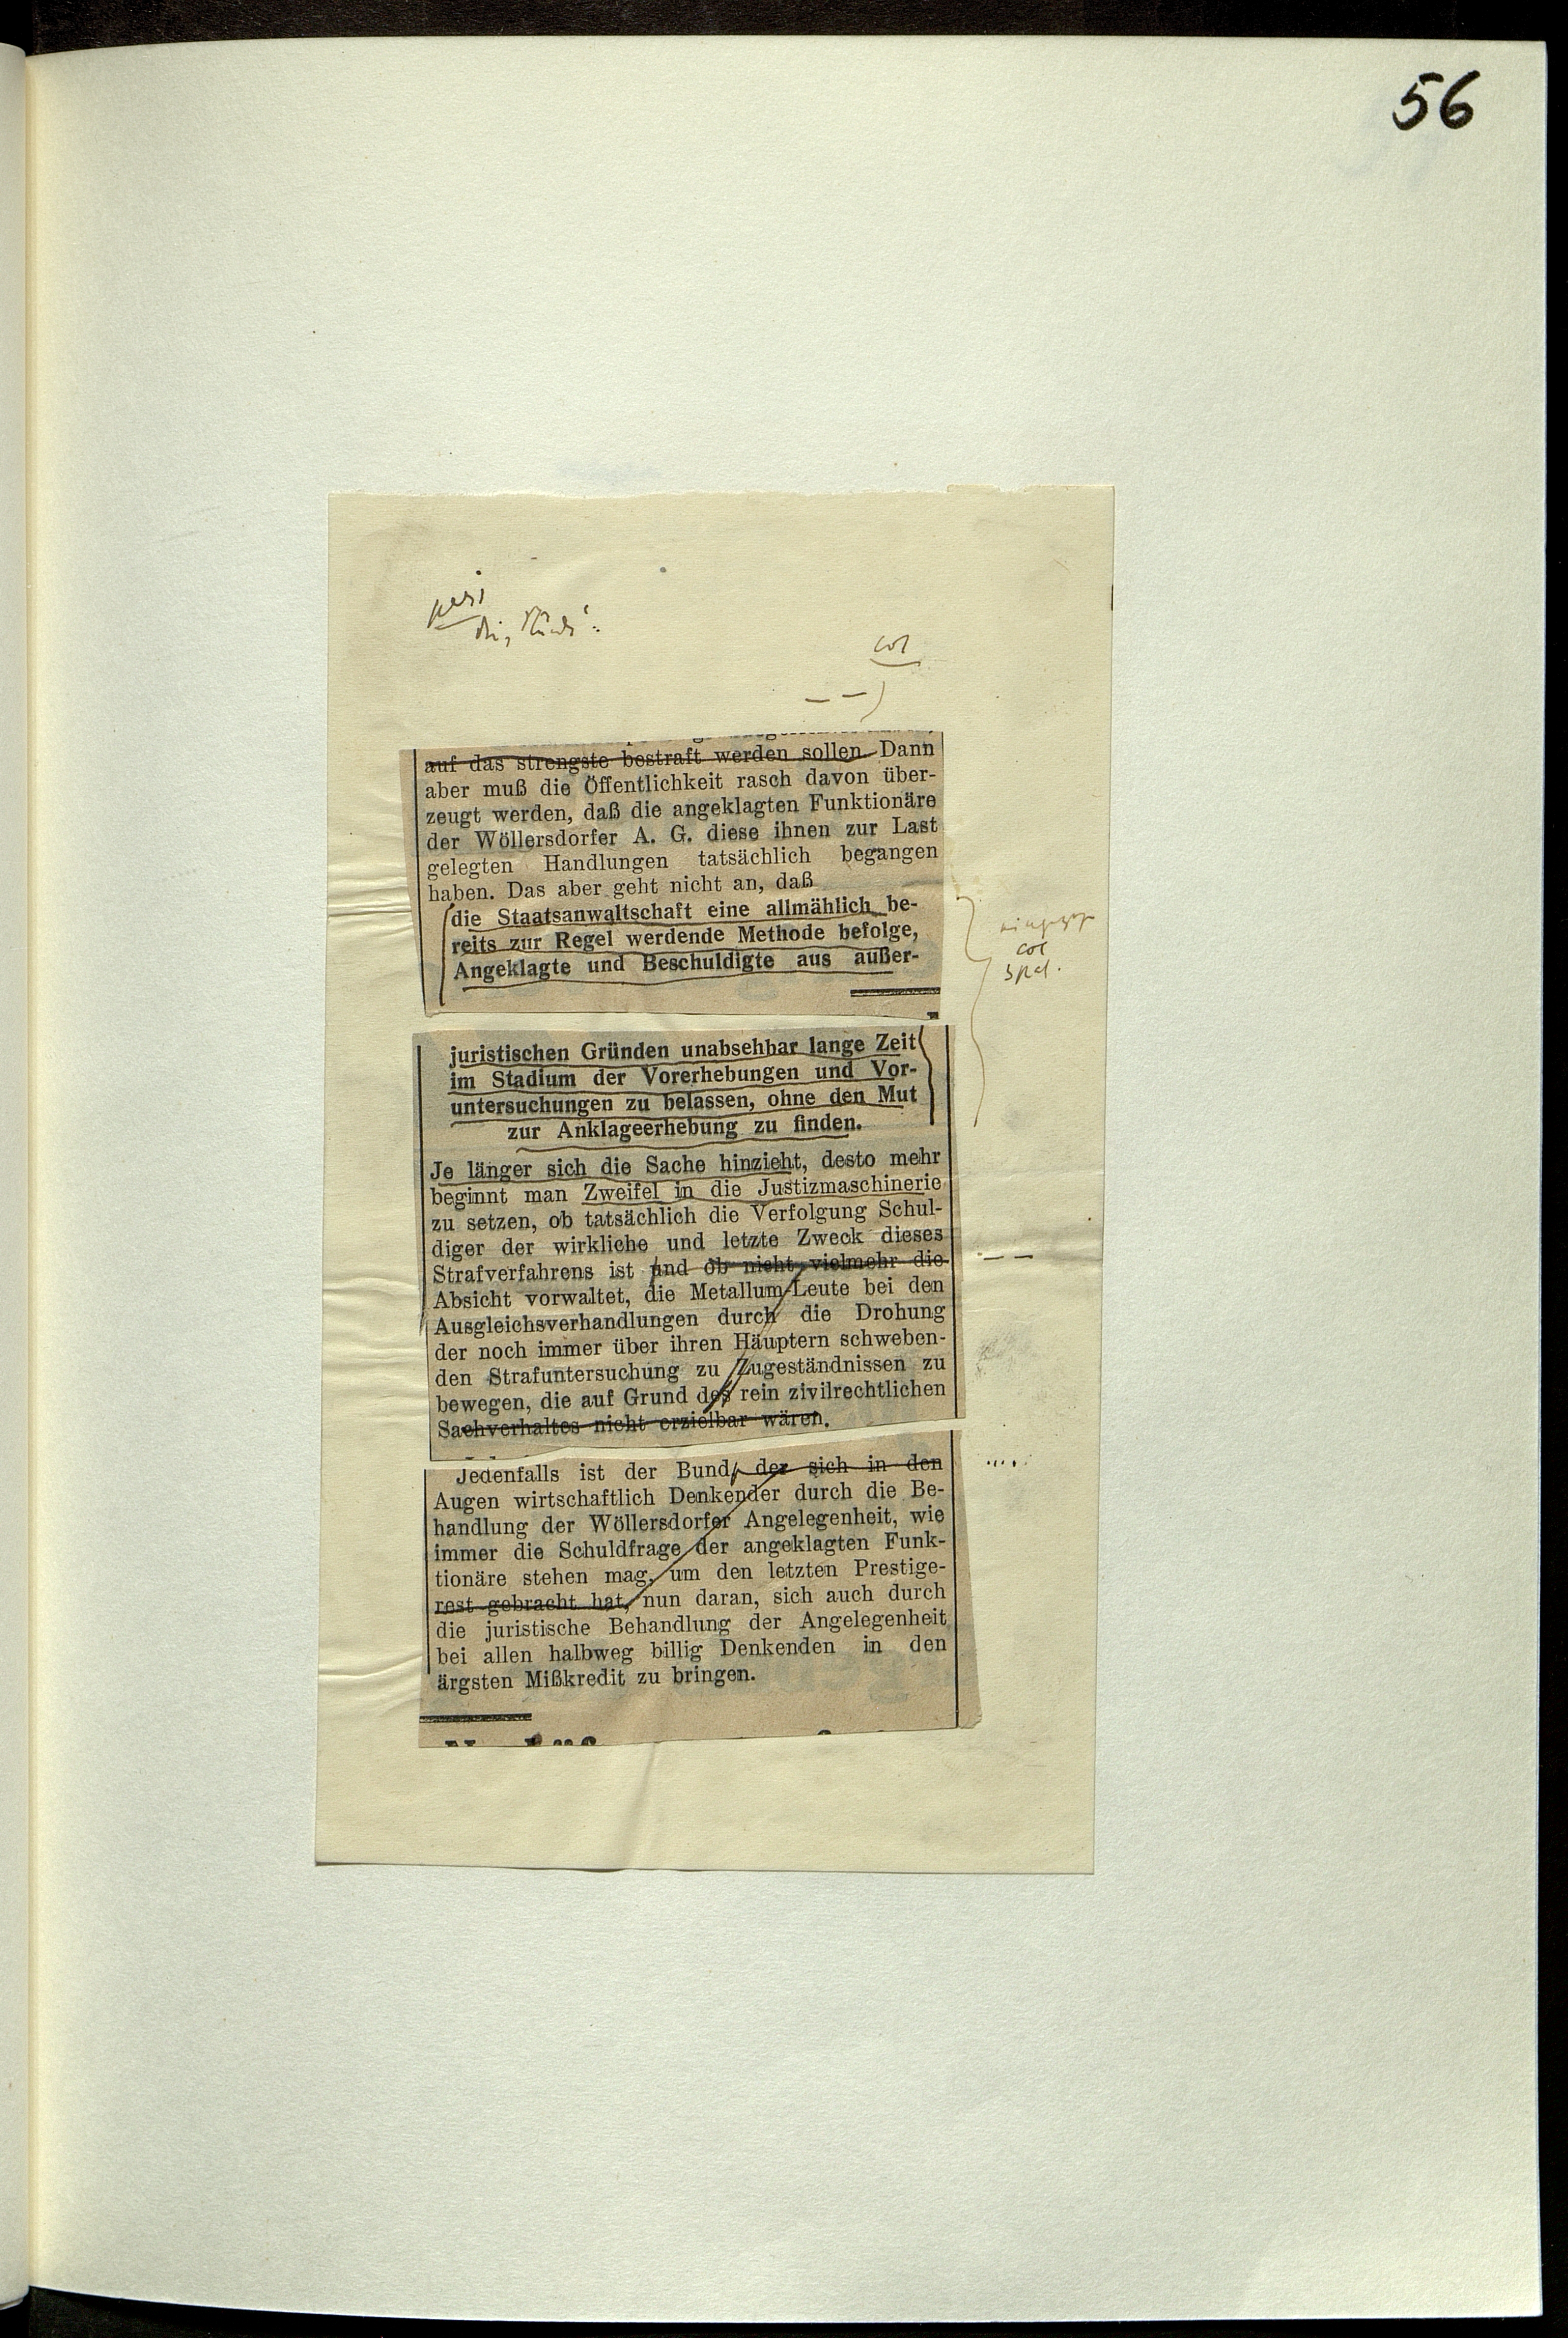 56
cor
auf das strengste bestraft werden sollen. Dann
aber muß die Öffentlichkeit rasch davon über-
zeugt werden, daß die angeklagten Funktionäre
der Wöllersdorfer A. G. diese ihnen zur Last
gelegten Handlungen tatsächlich begangen
haben. Das aber geht nicht an, daß
die Staatsanwaltschaft eine allmählich be-
reits zur Regel werdende Methode befolge,
Angeklagte und Beschuldigte aus außer-
cor
juristischen Gründen unabsehbar lange Zeit
im Stadium der Vorerhebungen und Vor-
untersuchungen zu belassen, ohne den Mut
zur Anklageerhebung zu finden.
Je länger sich die Sache hinzieht, desto mehr
beginnt man Zweifel in die Justizmaschinerie
zu setzen, ob tatsächlich die Verfolgung Schul-
diger der wirkliche und letzte Zweck dieses
Strafverfahrens ist und ob nicht vielmehr die
Absicht vorwaltet, die Metallum-Leute bei den
Ausgleichsverhandlungen durch die Drohung
der noch immer über ihren Häuptern schweben-
den Strafuntersuchung zu Zugeständnissen zu
bewegen, die auf Grund des rein zivilrechtlichen
Sachverhaltes nicht erzielbar wären.
Jedenfalls ist der Bund, der sich in den
Augen wirtschaftlich Denkender durch die Be-
handlung der Wöllersdorfer Angelegenheit, wie
immer die Schuldfrage der angeklagten Funk-
tionäre stehen mag, um den letzten Prestige-
rest gebracht hat, nun daran, sich auch durch
die juristische Behandlung der Angelegenheit
bei allen halbweg billig Denkenden in den
ärgsten Mißkredit zu bringen.